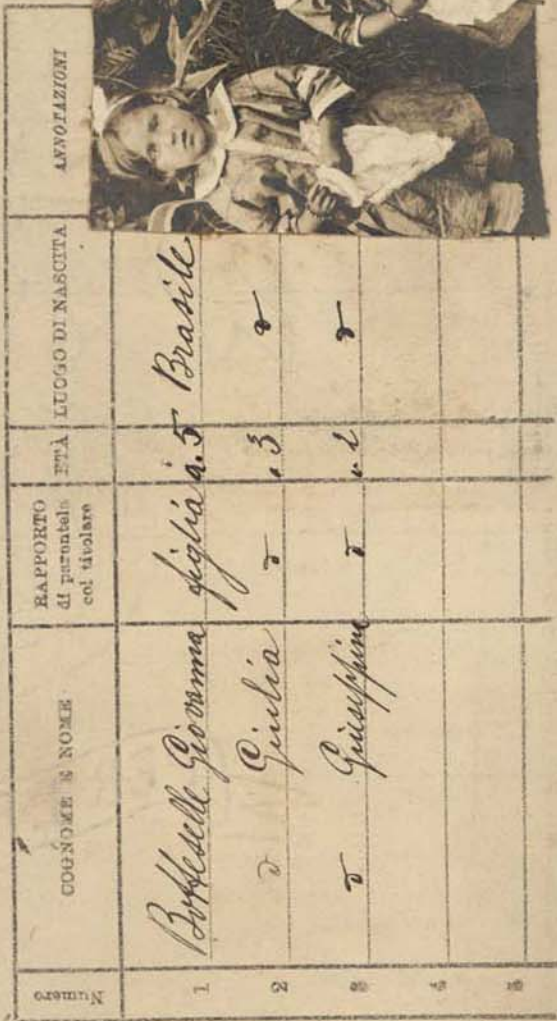 Numero COGNOME E NOME RAPPORTO di parentela col titolare ETÀ LUOGO DI NASCITA ANNOTAZIONI
1 Botteselle Giovanna figlia a. 5 Brasile
2 " Giulia " " 3 "
3 " Giuseppina " " 2 "
4
5